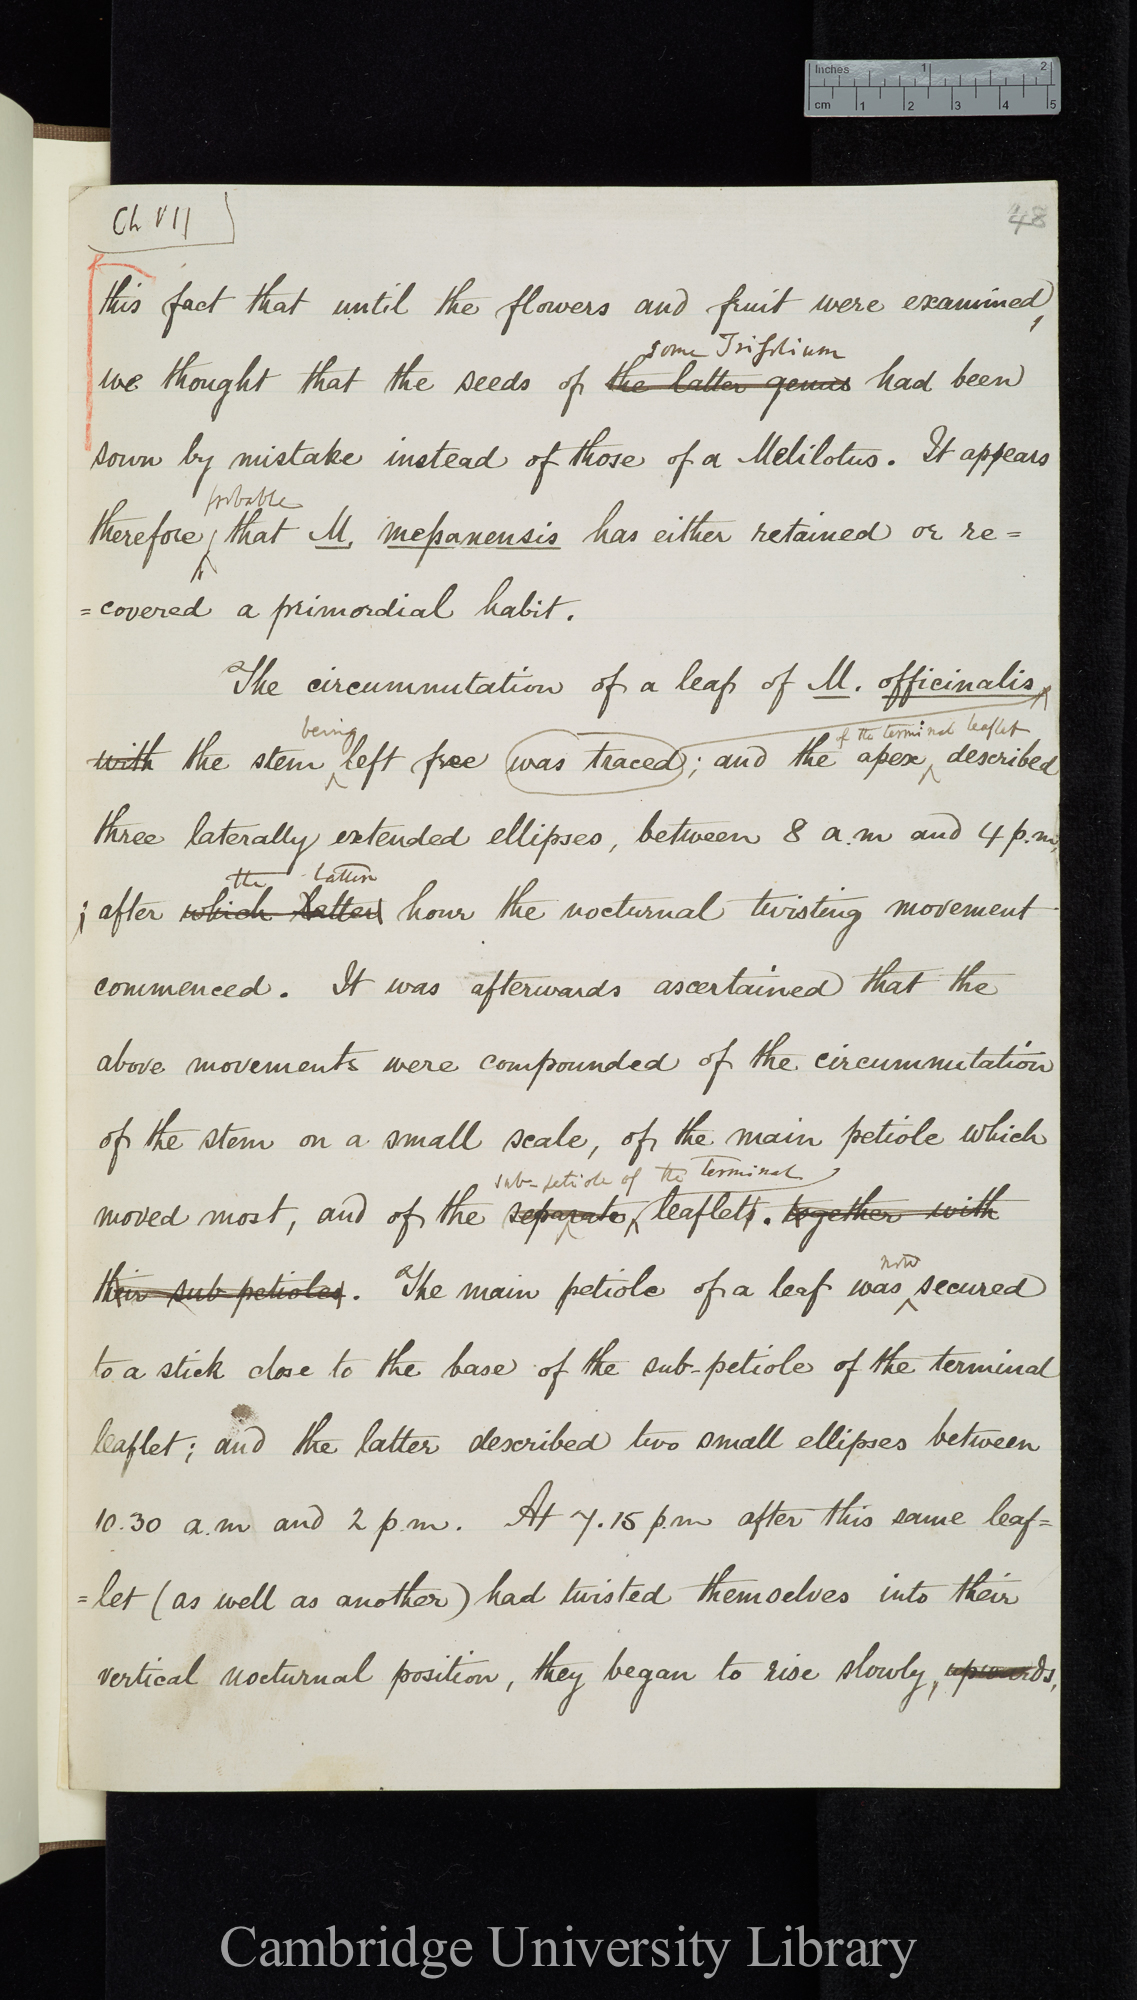 Inches 1 2
cm 1 2 3 4 5
Ch VII
48
this fact that until the flowers and fruit were examined,
some Trifolium
we thought that the seeds of the latter genus had been
sown by mistake instead of those of a Melilotus. It appears
probable
therefore, that M. messanensis has either retained or re=
=covered a primordial habit.
The circumnutation of a leaf of M. officinalis
being
of the terminal leaflet
with the stem left free was traced; and the apex described
three laterally extended ellipses, between 8 a.m and 4 p.m,
the latter
; after which latter hour the nocturnal twisting movement
commenced. It was afterwards ascertained that the
above movements were compounded of the circumnutation
of the stem on a small scale, of the main petiole which
sub-petiole of the terminal
moved most, and of the separate, leaflets. together with
their sub-petioles. The main petiole of a leaf was secured
now
to a stick close to the base of the sub-petiole of the terminal
leaflet; and the latter described two small ellipses between
10.30 a.m and 2 p.m. At 7.15 p.m after this same leaf=
=let (as well as another) had twisted themselves into their
vertical nocturnal position, they began to rise slowly, upwards,
Cambridge University Library